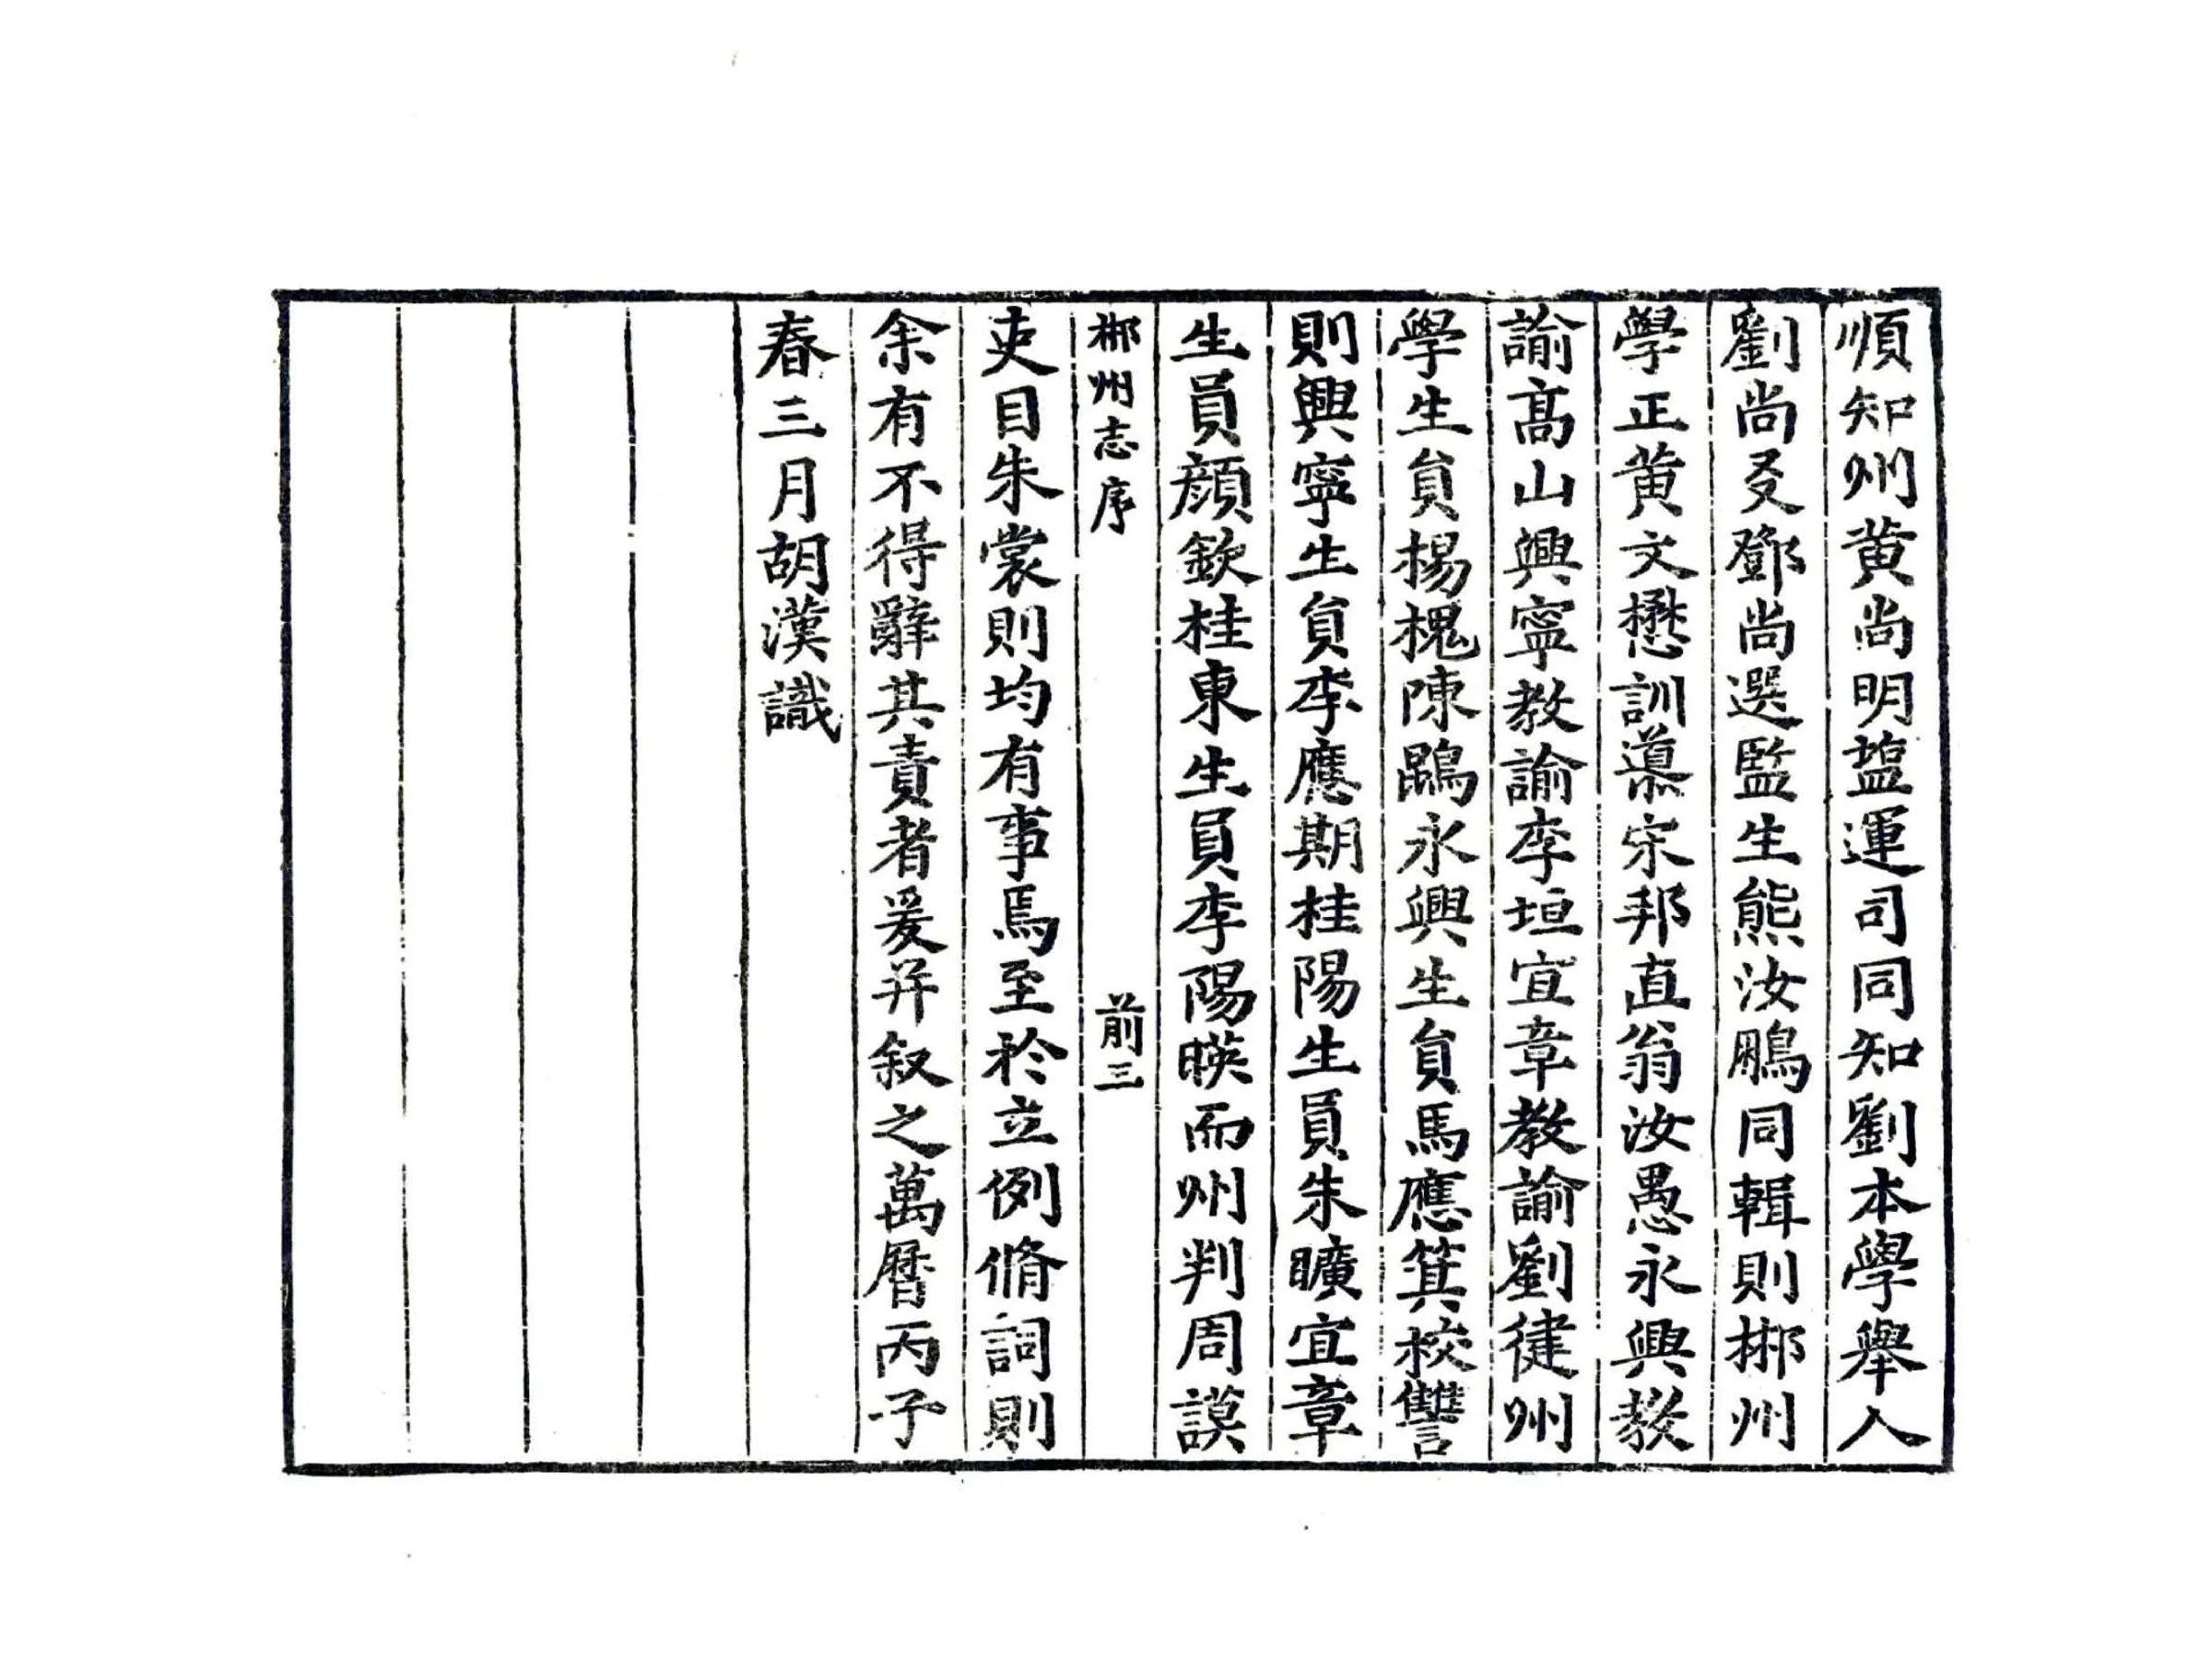 順知州黄尚明塩運司同知劉本學舉人
劉尚爻鄧尚選監生熊汝鵬同輯則郴州
學正黄文懋訓導宋邦直翁汝愚永興教
諭髙山興寧教諭李垣宜章教諭劉健州
學生員楊槐陳鵾永興生員馬應箕校讐
則興寧生員李應期桂陽生員朱曠宜章
生員顔欽桂東生員李陽暎而州判周謨
郴州志序
前三
吏目朱裳則均有事焉至於立例脩詞則
余有不得辭其責者爰并叙之萬曆丙子
春三月胡漢識